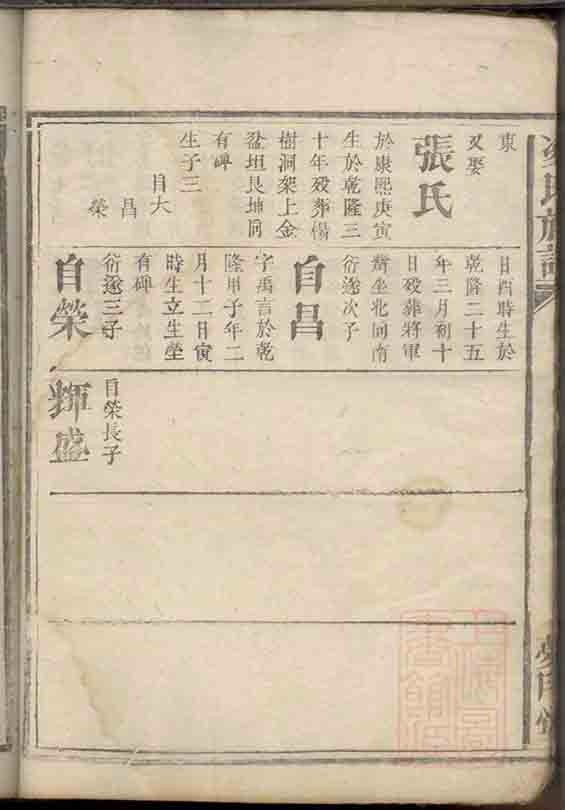 東
又娶
張氏
於康熙庚寅
生於乾隆三
十年歿葬楊
樹洞架上金
盆坦艮坤向
有碑
生子三
自大
昌
榮
日酉時生於
乾隆二十五
年三月初十
日歿葬將軍
坐北向南
自昌
衍遂次子
字禹言於乾
隆甲子年二
月十二日寅
時生立生塋
有碑
自榮
衍遂三子
輝盛
自榮長子
氏族譜